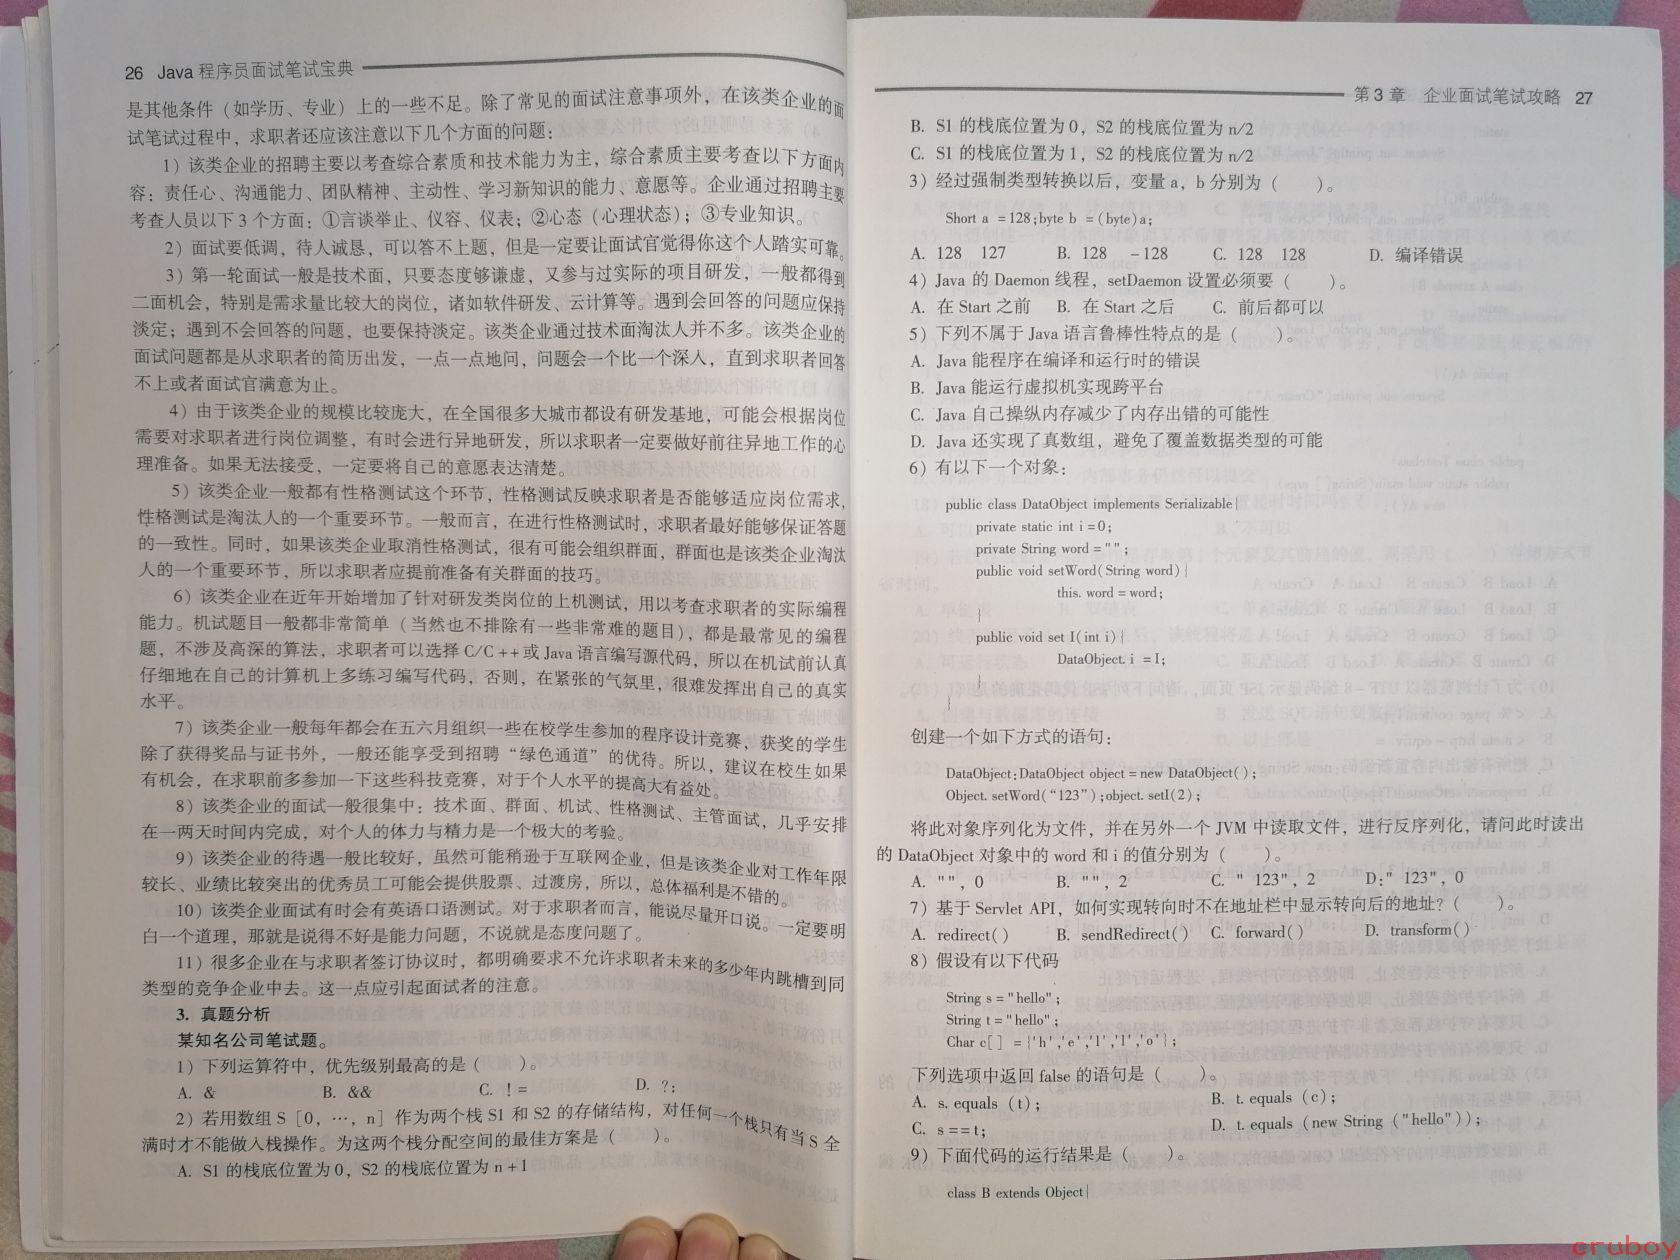 26 Java 程序员面试笔试宝典
是其他条件（如学历、专业）上的一些不足。除了常见的面试注意事项外，在该类企业的面
试笔试过程中，求职者还应该注意以下几个方面的问题：
1）该类企业的招聘主要以考查综合素质和技术能力为主，综合素质主要考查以下方面内
容：责任心、沟通能力、团队精神、主动性、学习新知识的能力、意愿等。企业通过招聘主要
考查人员以下 3 个方面：①言谈举止、仪容、仪表；②心态（心理状态）；③专业知识。
2）面试要低调，待人诚恳，可以答不上题，但是一定要让面试官觉得你这个人踏实可靠。
3）第一轮面试一般是技术面，只要态度够谦虚，又参与过实际的项目研发，一般都得到
二面机会，特别是需求量比较大的岗位，诸如软件研发、云计算等。遇到会回答的问题应保持
淡定；遇到不会回答的问题，也要保持淡定。该类企业通过技术面淘汰人并不多。该类企业的
面试问题都是从求职者的简历出发，一点一点地问，问题会一个比一个深入，直到求职者回答
不上或者面试官满意为止。
4）由于该类企业的规模比较庞大，在全国很多大城市都设有研发基地，可能会根据岗位
需要对求职者进行岗位调整，有时会进行异地研发，所以求职者一定要做好前往异地工作的心
理准备。如果无法接受，一定要将自己的意愿表达清楚。
5）该类企业一般都有性格测试这个环节，性格测试反映求职者是否能够适应岗位需求，
性格测试是淘汰人的一个重要环节。一般而言，在进行性格测试时，求职者最好能够保证答题
的一致性。同时，如果该类企业取消性格测试，很有可能会组织群面，群面也是该类企业淘汰
人的一个重要环节，所以求职者应提前准备有关群面的技巧。
6）该类企业在近年开始增加了针对研发类岗位的上机测试，用以考查求职者的实际编程
能力。机试题目一般都非常简单（当然也不排除有一些非常难的题目），都是最常见的编程
题，不涉及高深的算法，求职者可以选择 C/C ++或 Java 语言编写源代码，所以在机试前认真
仔细地在自己的计算机上多练习编写代码，否则，在紧张的气氛里，很难发挥出自己的真实
水平。
7）该类企业一般每年都会在五六月组织一些在校学生参加的程序设计竞赛，获奖的学生
除了获得奖品与证书外，一般还能享受到招聘“绿色通道”的优待。所以，建议在校生如果
有机会，在求职前多参加一下这些科技竞赛，对于个人水平的提高大有益处。
8）该类企业的面试一般很集中：技术面、群面、机试、性格测试、主管面试，几乎安排
在一两天时间内完成，对个人的体力与精力是一个极大的考验。
9）该类企业的待遇一般比较好，虽然可能稍逊于互联网企业，但是该类企业对工作年限
较长、业绩比较突出的优秀员工可能会提供股票、过渡房，所以，总体福利是不错的。
10）该类企业面试有时会有英语口语测试。对于求职者而言，能说尽量开口说。一定要明
白一个道理，那就是说得不好是能力问题，不说就是态度问题了。
11）很多企业在与求职者签订协议时，都明确要求不允许求职者未来的多少年内跳槽到同
类型的竞争企业中去。这一点应引起面试者的注意。
3. 真题分析
某知名公司笔试题。
1）下列运算符中，优先级别最高的是（　　）。
A. & B. && C. ！= D. ?：
2）若用数组 S［0，…，n］作为两个栈 S1 和 S2 的存储结构，对任何一个栈只有当 S 全
满时才不能做入栈操作。为这两个栈分配空间的最佳方案是（　　）。
A. S1 的栈底位置为 0，S2 的栈底位置为 n + 1
第 3 章　企业面试笔试攻略 27
B. S1 的栈底位置为 0，S2 的栈底位置为 n/2
C. S1 的栈底位置为 1，S2 的栈底位置为 n/2
3）经过强制类型转换以后，变量 a，b 分别为（　　）。
Short a =128;byte b =(byte)a;
A. 128 127 B. 128 －128 C. 128 128 D. 编译错误
4）Java 的 Daemon 线程，setDaemon 设置必须要（　　）。
A. 在 Start 之前 B. 在 Start 之后 C. 前后都可以
5）下列不属于 Java 语言鲁棒性特点的是（　　）。
A. Java 能程序在编译和运行时的错误
B. Java 能运行虚拟机实现跨平台
C. Java 自己操纵内存减少了内存出错的可能性
D. Java 还实现了真数组，避免了覆盖数据类型的可能
6）有以下一个对象：
public class DataObject implements Serializable{
private static int i =0;
private String word ="";
public void setWord(String word){
this. word = word;
}
public void set I(int i){
DataObject. i =I;
}
}
创建一个如下方式的语句：
DataObject:DataObject object =new DataObject();
Object. setWord(“123”);object. setI(2);
将此对象序列化为文件，并在另外一个 JVM 中读取文件，进行反序列化，请问此时读出
的 DataObject 对象中的 word 和 i 的值分别为（　　）。
A. ""，0 B. ""，2 C. " 123"，2 D:" 123"，0
7）基于 Servlet API，如何实现转向时不在地址栏中显示转向后的地址？（　　）。
A. redirect() B. sendRedirect() C. forward() D. transform()
8）假设有以下代码
String s ="hello";
String t ="hello";
Char c[ ] ={'h','e','l','l','o'};
下列选项中返回 false 的语句是（　　）。
A. s. equals（t）; B. t. equals（c）;
C. s ==t; D. t. equals（new String（"hello"））;
9）下面代码的运行结果是（　　）。
class B extends Object{
cruboy